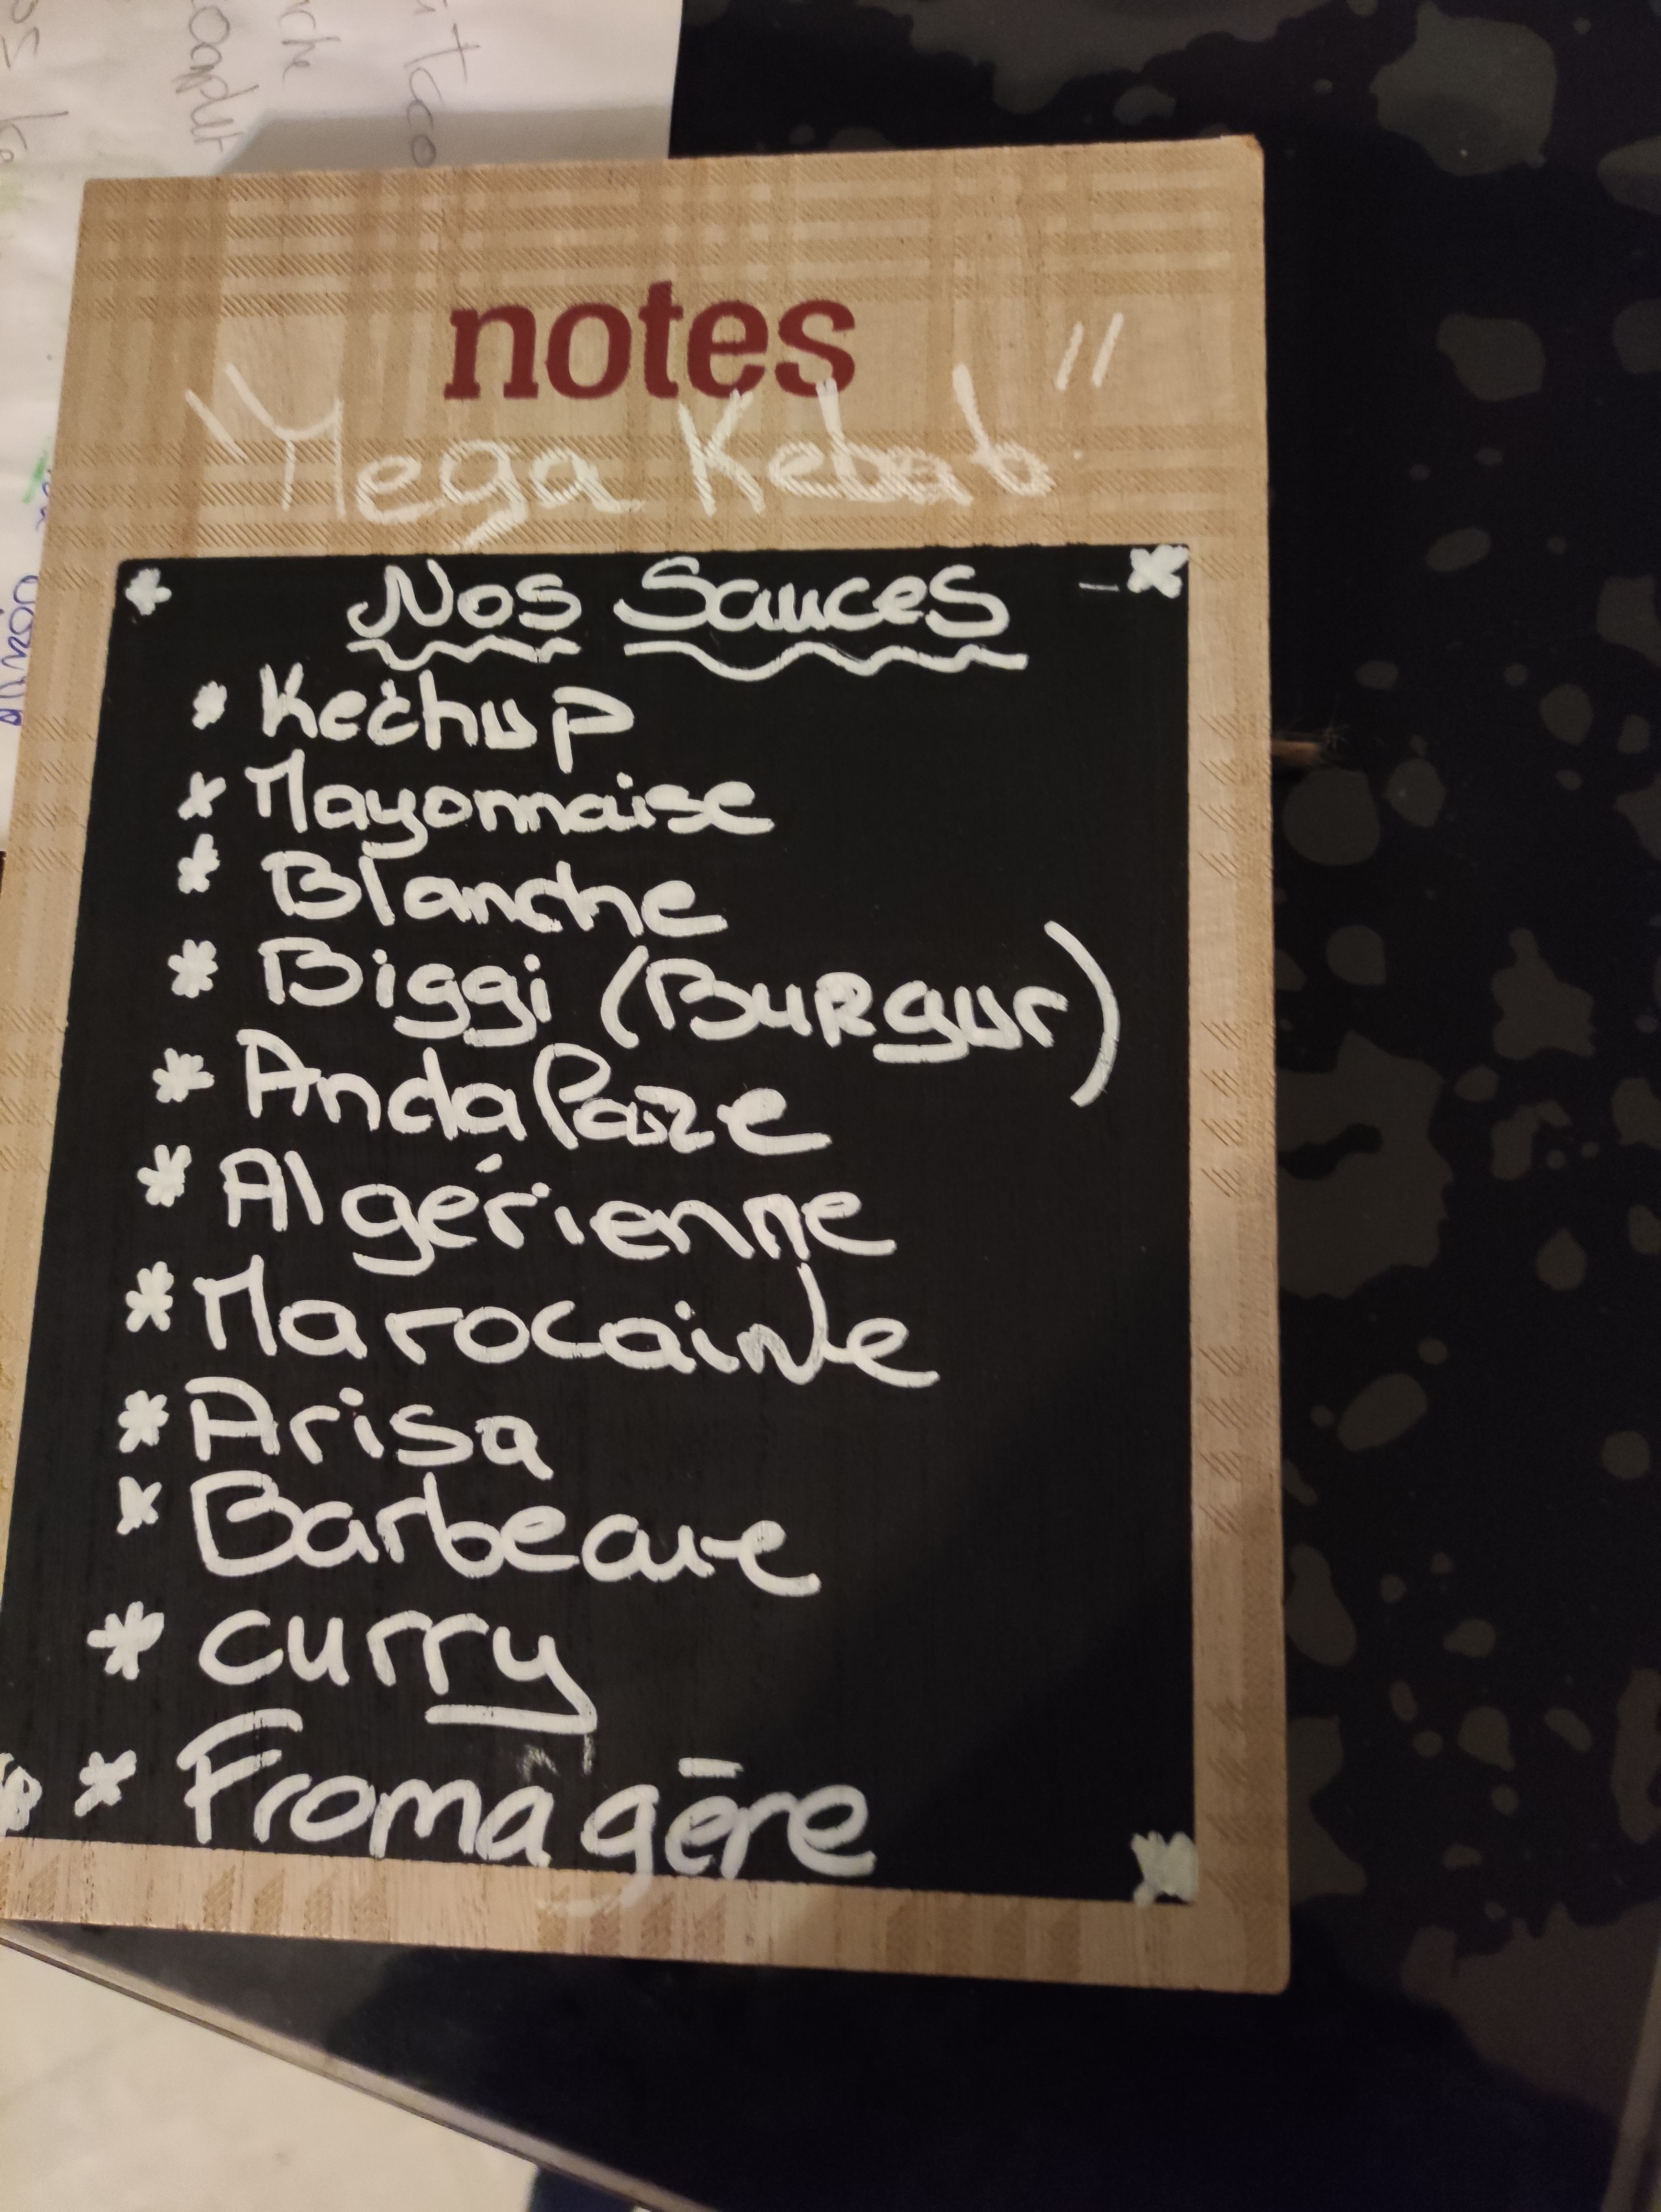 notes
"Mega Kebab"
Nos Sauces
* Kećhup
* Mayonnaise
* Blanche
* Biggi (Burgur)
* Andalaze
* Algérienne
* Marocaine
* Arisa
* Barbecue
* curry
* Fromagère